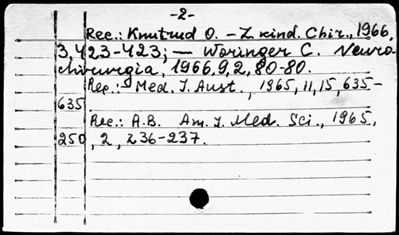 -2-
Rec.: Knutrud O. – Z. kind. Chir., 1966,
3, 423-423; – Woringer C. Neuro-
chirurgia, 1966, 9, 2, 80-80.
Rep.: Med. J. Aust., 1965, 11, 15, 635-
635
Rec.: A.B. Am. J. Med. Sci., 1965,
250, 2, 236-237.